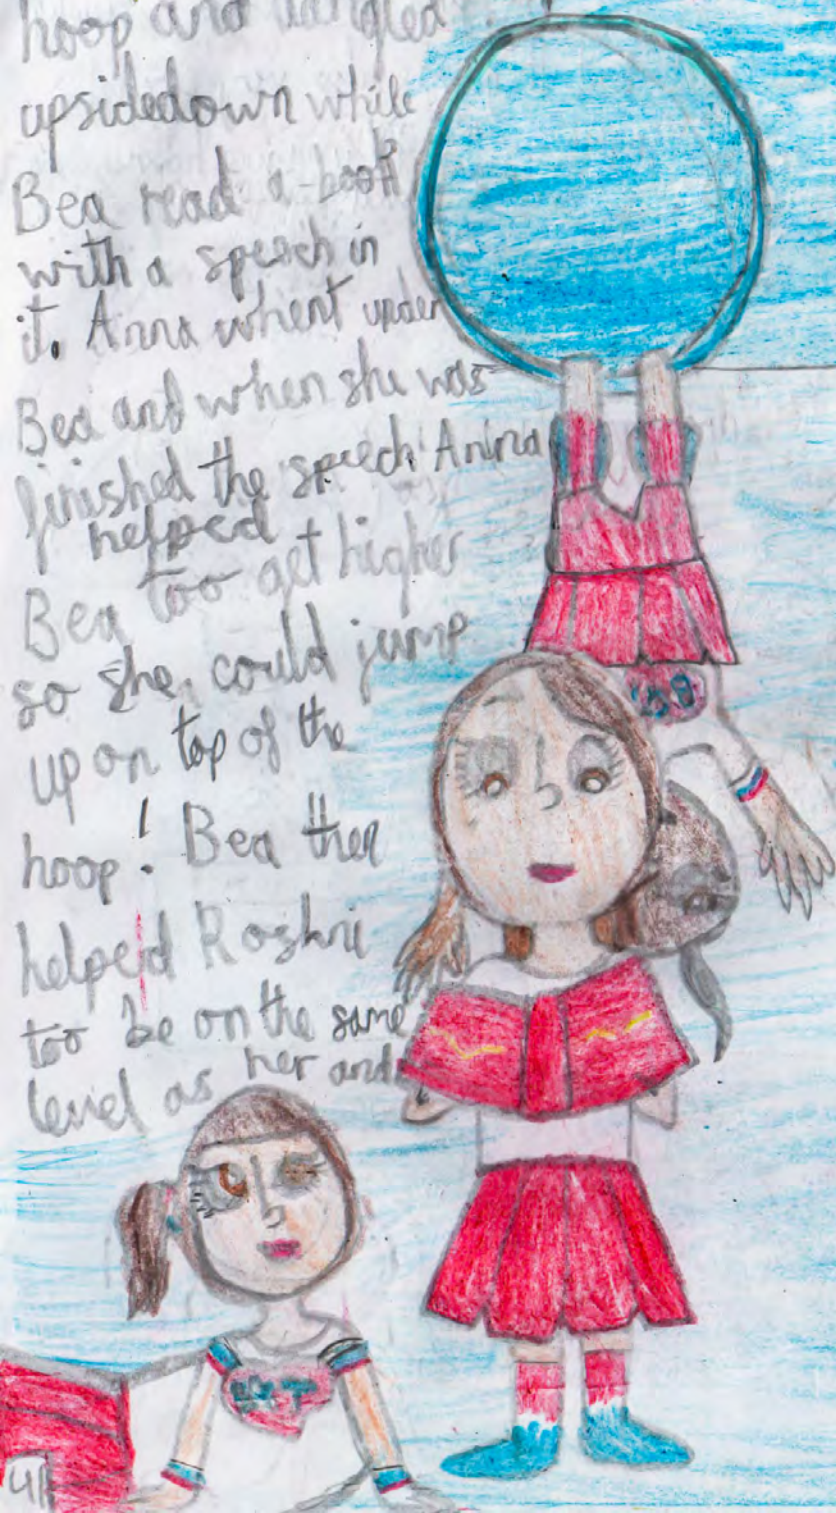 hoop and dangled
upsidedown while
Bea read a book
with a speech in
it. Anna whent under
Bea and when she was
finished the speech Anna
helped
Bea too get higher
so she could jump
up on top of the
hoop! Bea then
helped Roshni
too be on the same
level as her and